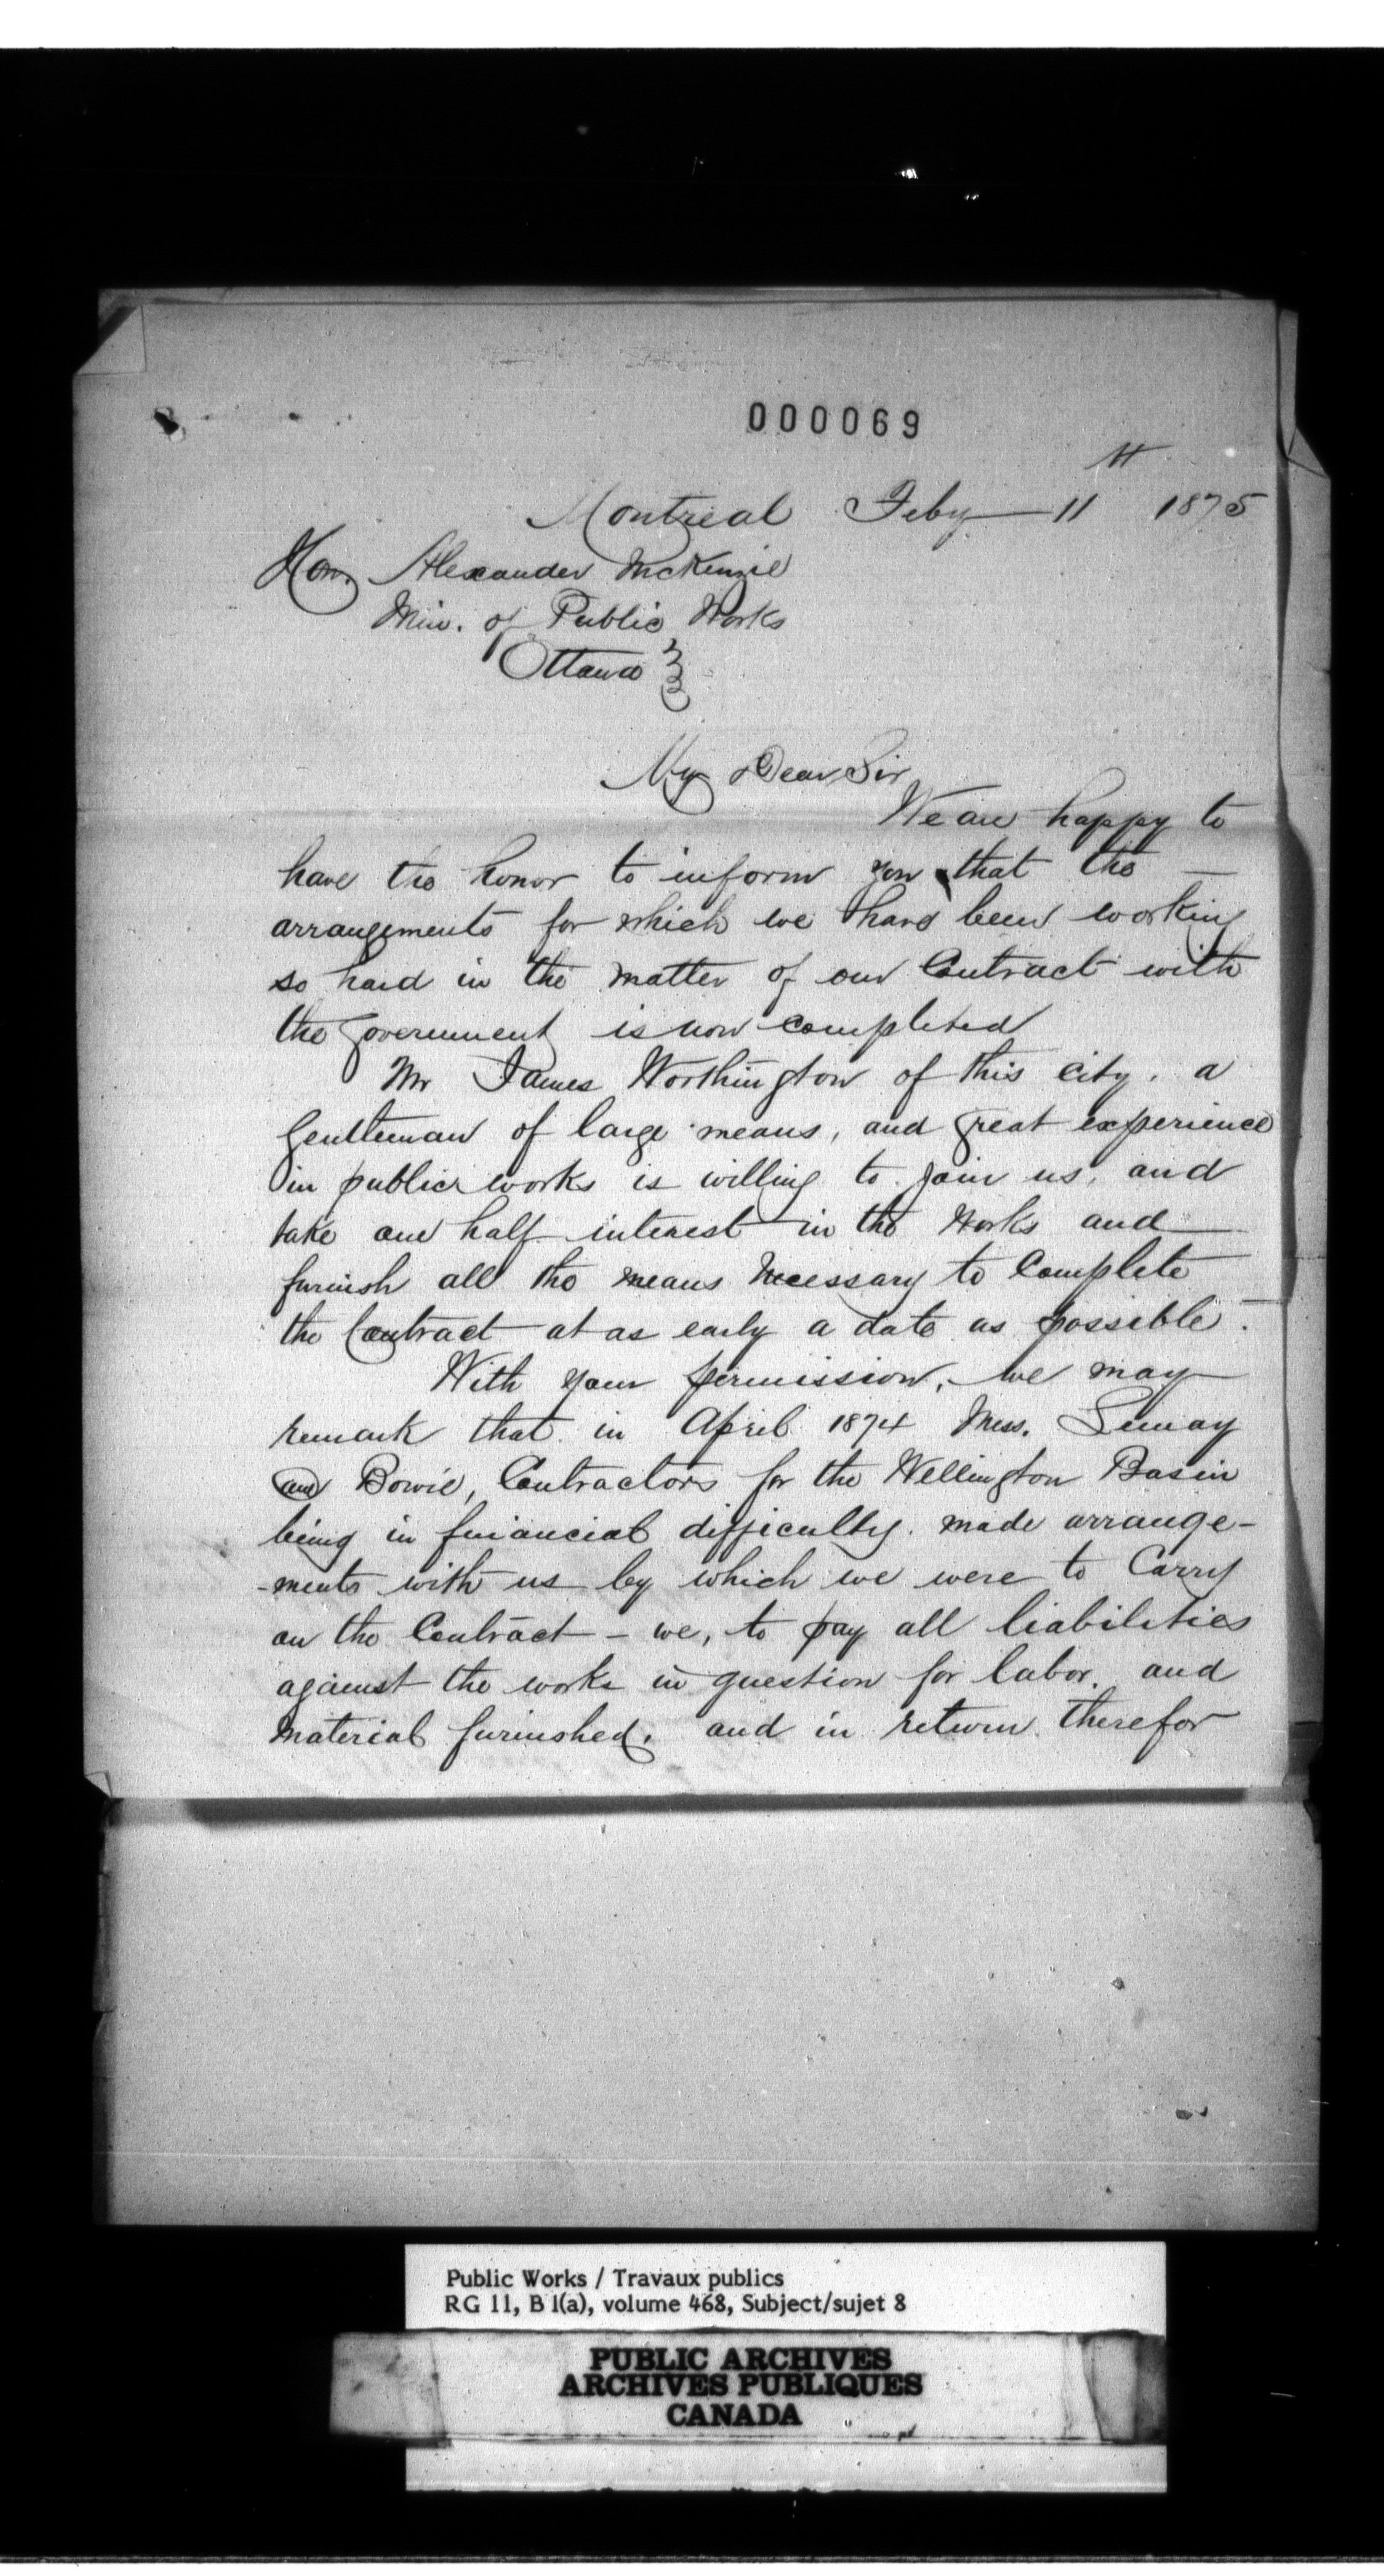 000069
Montreal Feby 11th 1875
Hon. Alexander McKenzie
Min. of Public Works
Ottawa
My Dear Sir
We are happy to
have the honor to inform you that the
arrangements for which we have been working
so hard in the matter of our Contract with
the government is now completed
Mr James Worthington of this city, a
gentleman of large means, and great experience
in public works is willing to join us, and
take one half interest in the works and
furnish all the means necessary to Complete
the Contract at as early a date as possible.
With your permission, we may
remark that in April 1874 Mess. Lemay
and Bowie, Contractors for the Wellington Basin
being in financial difficulty. made arrange-
-ments with us by which we were to Carry
on the Contract - we, to pay all liabilities
against the works in question for labor, and
material furnished, and in return therefor
Public Works / Travaux publics
RG 11, B 1(a), volume 468, Subject/sujet 8
PUBLIC ARCHIVES
ARCHIVES PUBLIQUES
CANADA